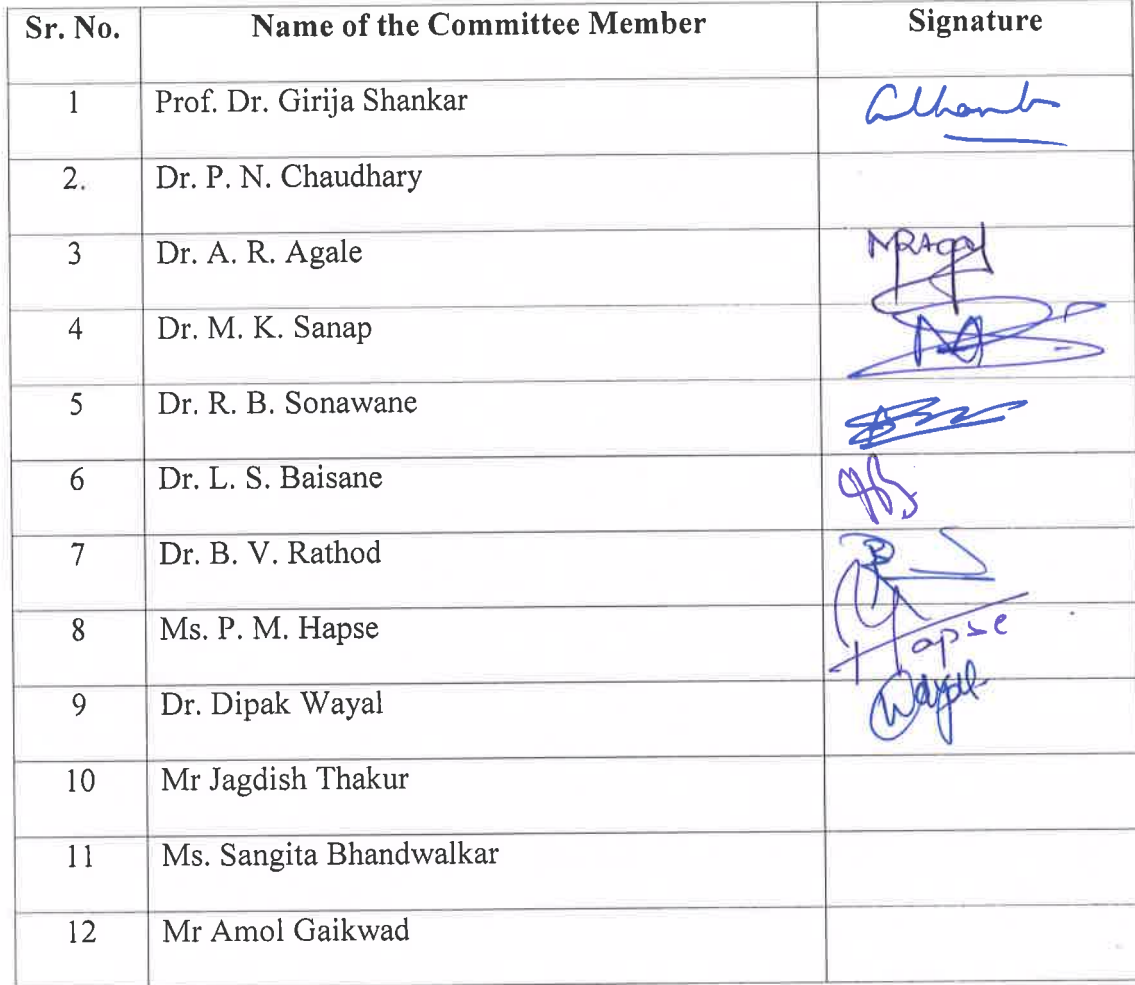 Sr. No. Name of the Committee Member Signature
1 Prof. Dr. Girija Shankar
2. Dr. P. N. Chaudhary
3 Dr. A. R. Agale
4 Dr. M. K. Sanap
5 Dr. R. B. Sonawane
6 Dr. L. S. Baisane
7 Dr. B. V. Rathod
8 Ms. P. M. Hapse Hapse
9 Dr. Dipak Wayal Wayal
10 Mr Jagdish Thakur
11 Ms. Sangita Bhandwalkar
12 Mr Amol Gaikwad